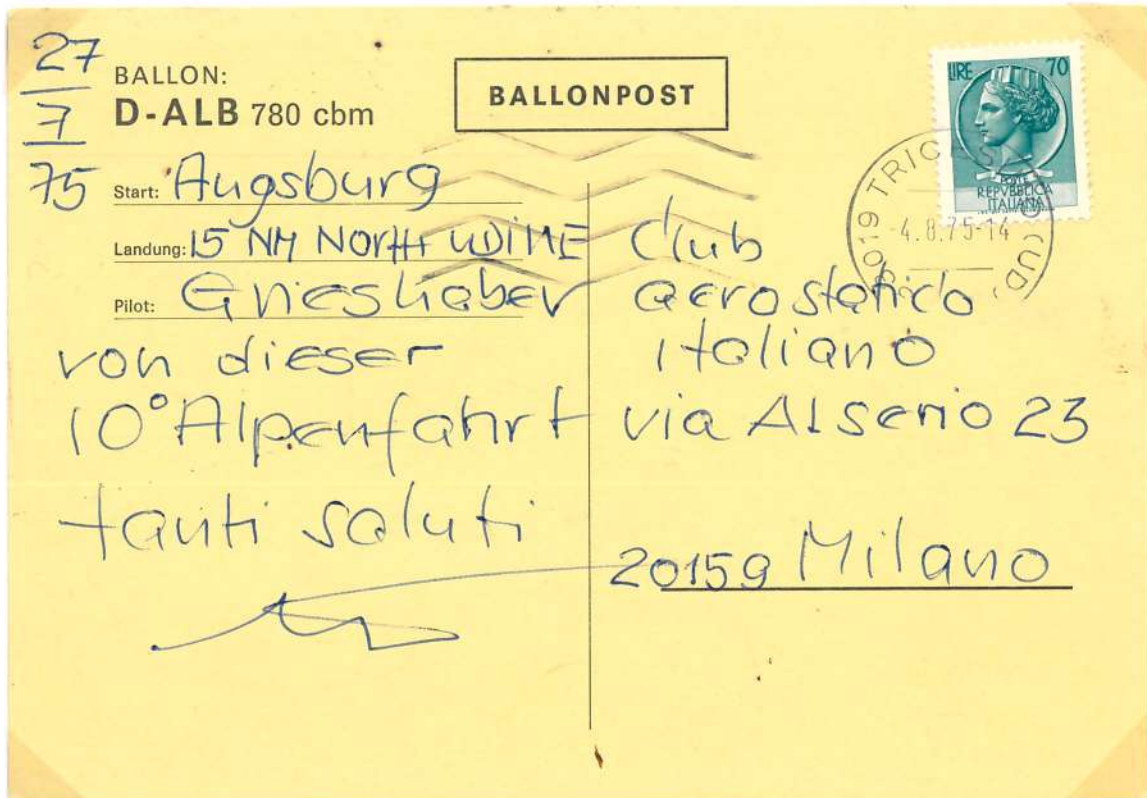 27
7
75
BALLON:
D-ALB 780 cbm
BALLONPOST
LIRE 70
POSTE
REPVBBLICA
ITALIANA
33019 TRICESIMO (UD)
-4.8.75-14
Start: Augsburg
Landung: 15 NM NORTH UDINE
Pilot: Grieshaber
von dieser
10° Alpenfahrt
tanti saluti
Club
aerostatico
italiano
via Alserio 23
20159 Milano